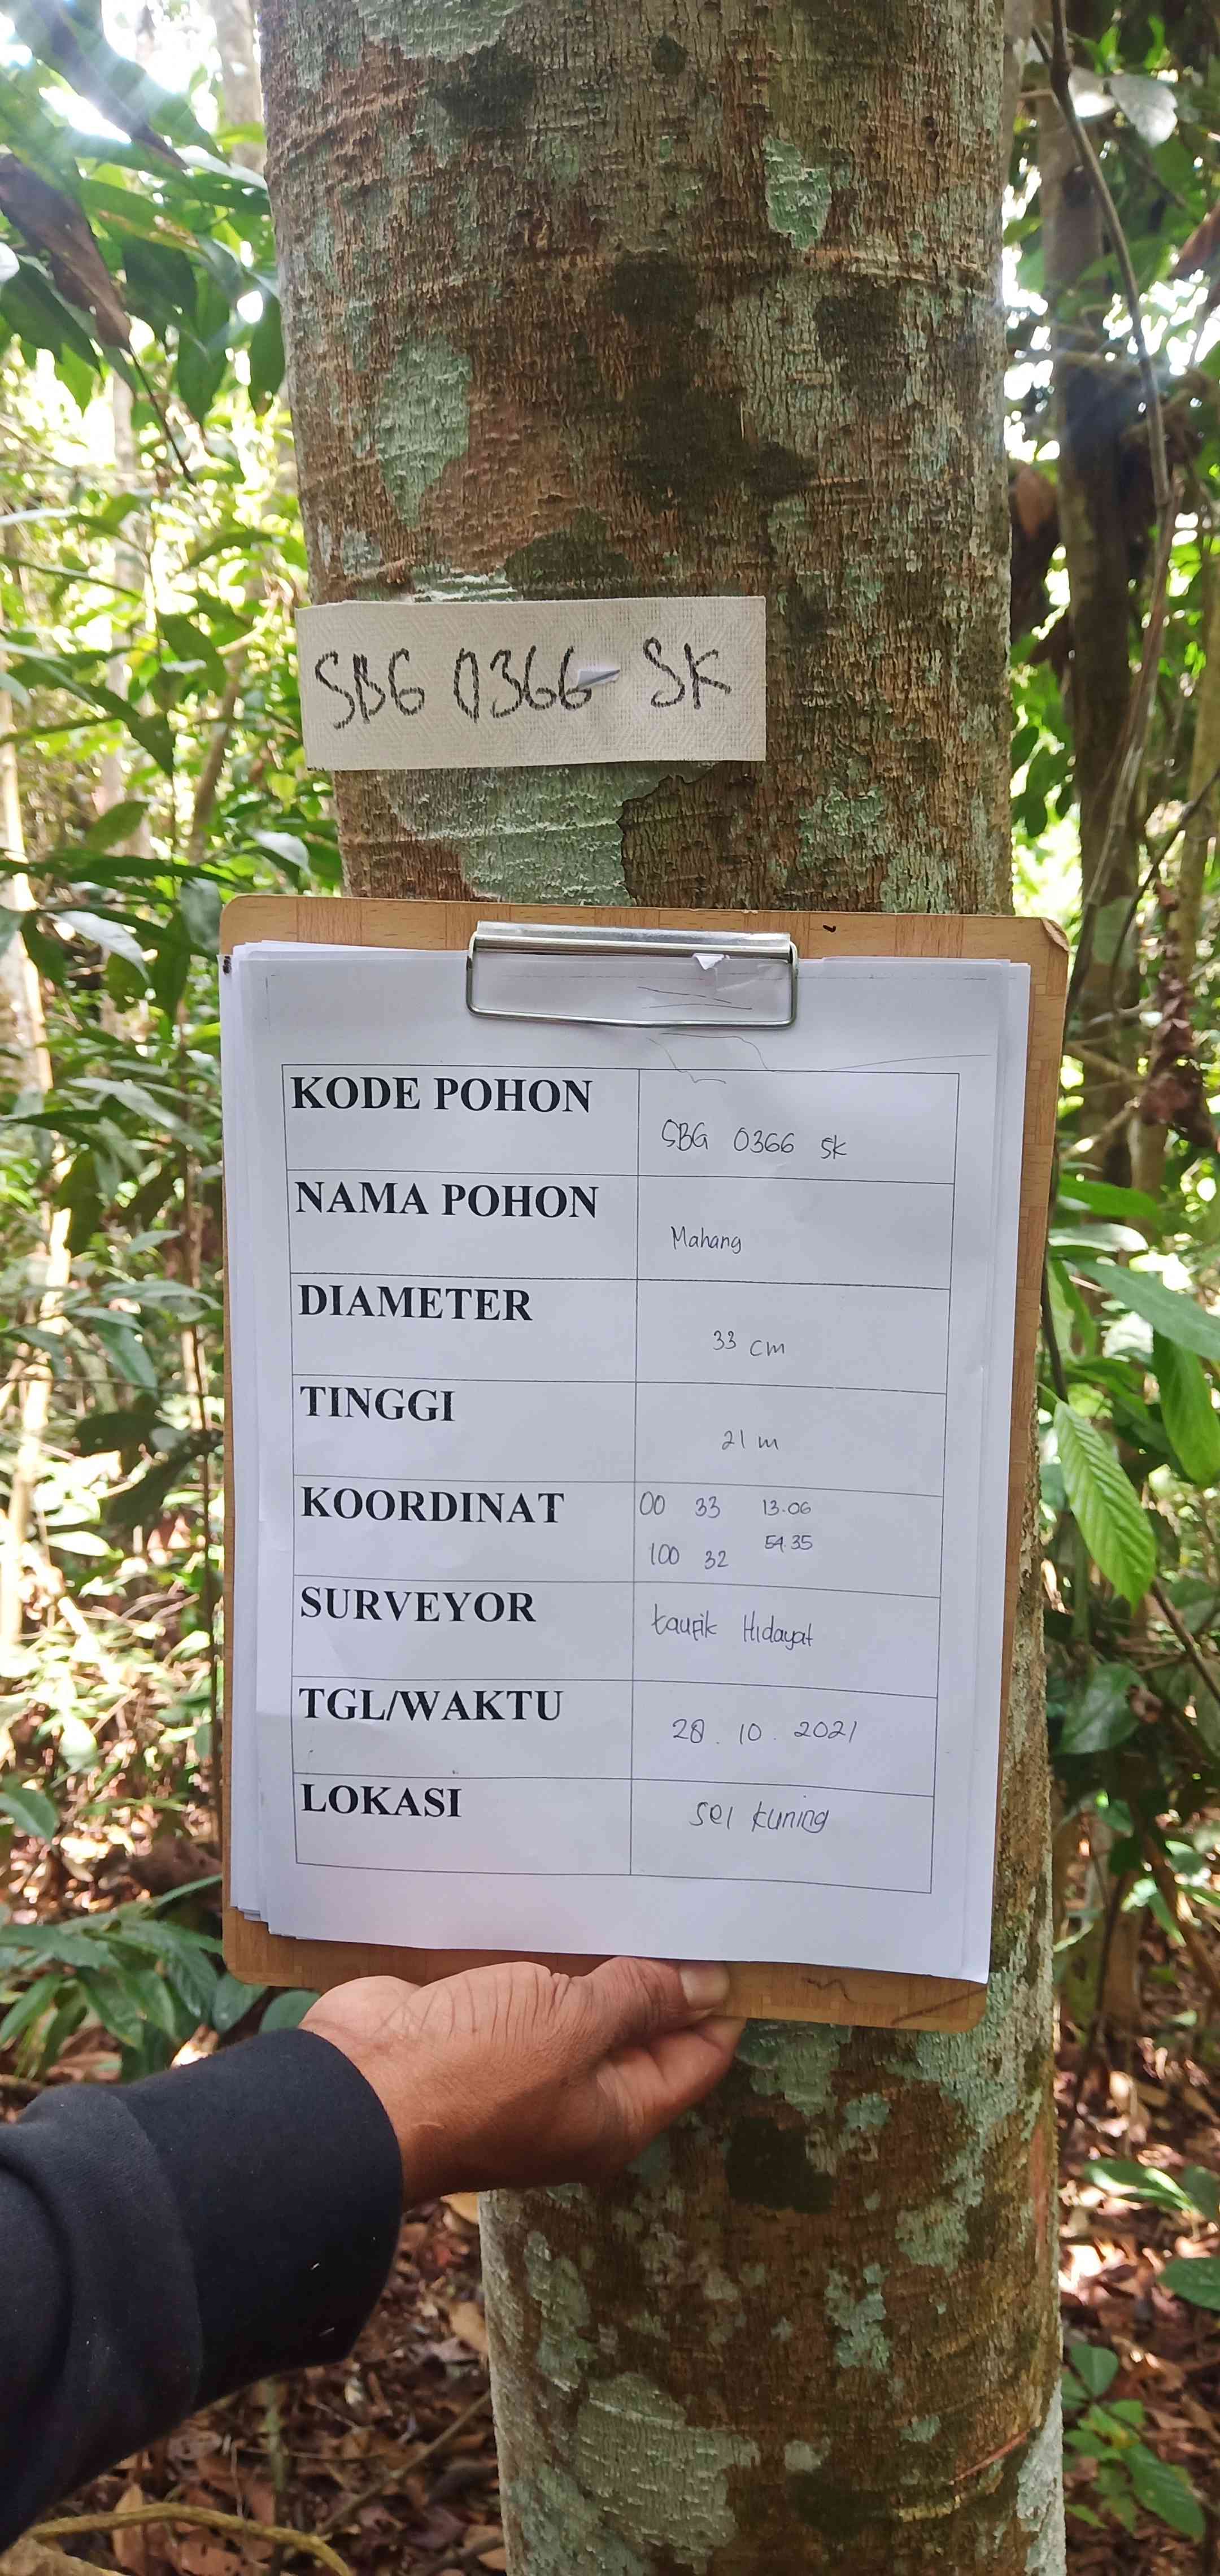 SBG 0366 SK
KODE POHON SBG 0366 SK
NAMA POHON Mahang
DIAMETER 33 cm
TINGGI 21 m
KOORDINAT 00 33 13.06
100 32 54.35
SURVEYOR taufik Hidayat
TGL/WAKTU 28. 10. 2021
LOKASI Sei kuning